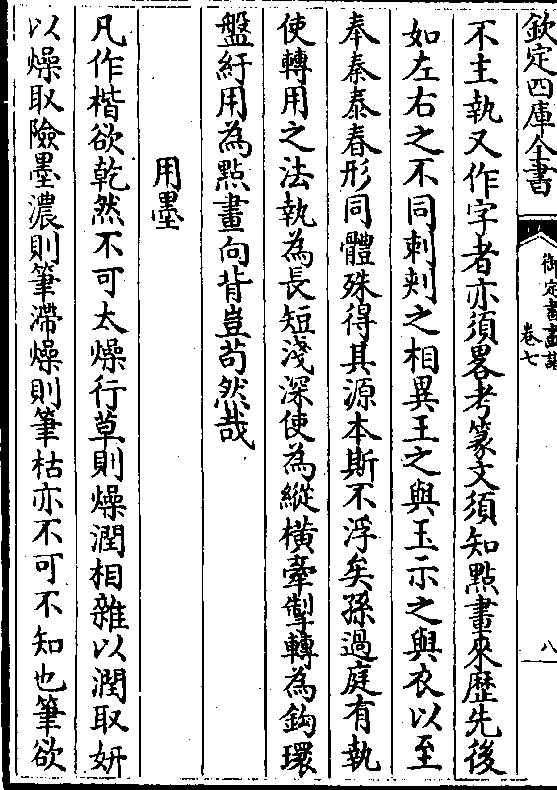 欽定四庫全書
御定書畫譜
卷七
八
不主執又作字者亦須畧考篆文須知點畫來歷先後
如左右之不同刺剌之相異王之與玉示之與衣以至
奉秦泰春形同體殊得其源本斯不浮矣孫過庭有執
使轉用之法執為長短淺深使為縱橫牽掣轉為鈎環
盤紆用為點畫向背豈苟然哉
用墨
凡作楷欲乾然不可太燥行草則燥潤相雜以潤取妍
以燥取險墨濃則筆滯燥則筆枯亦不可不知也筆欲